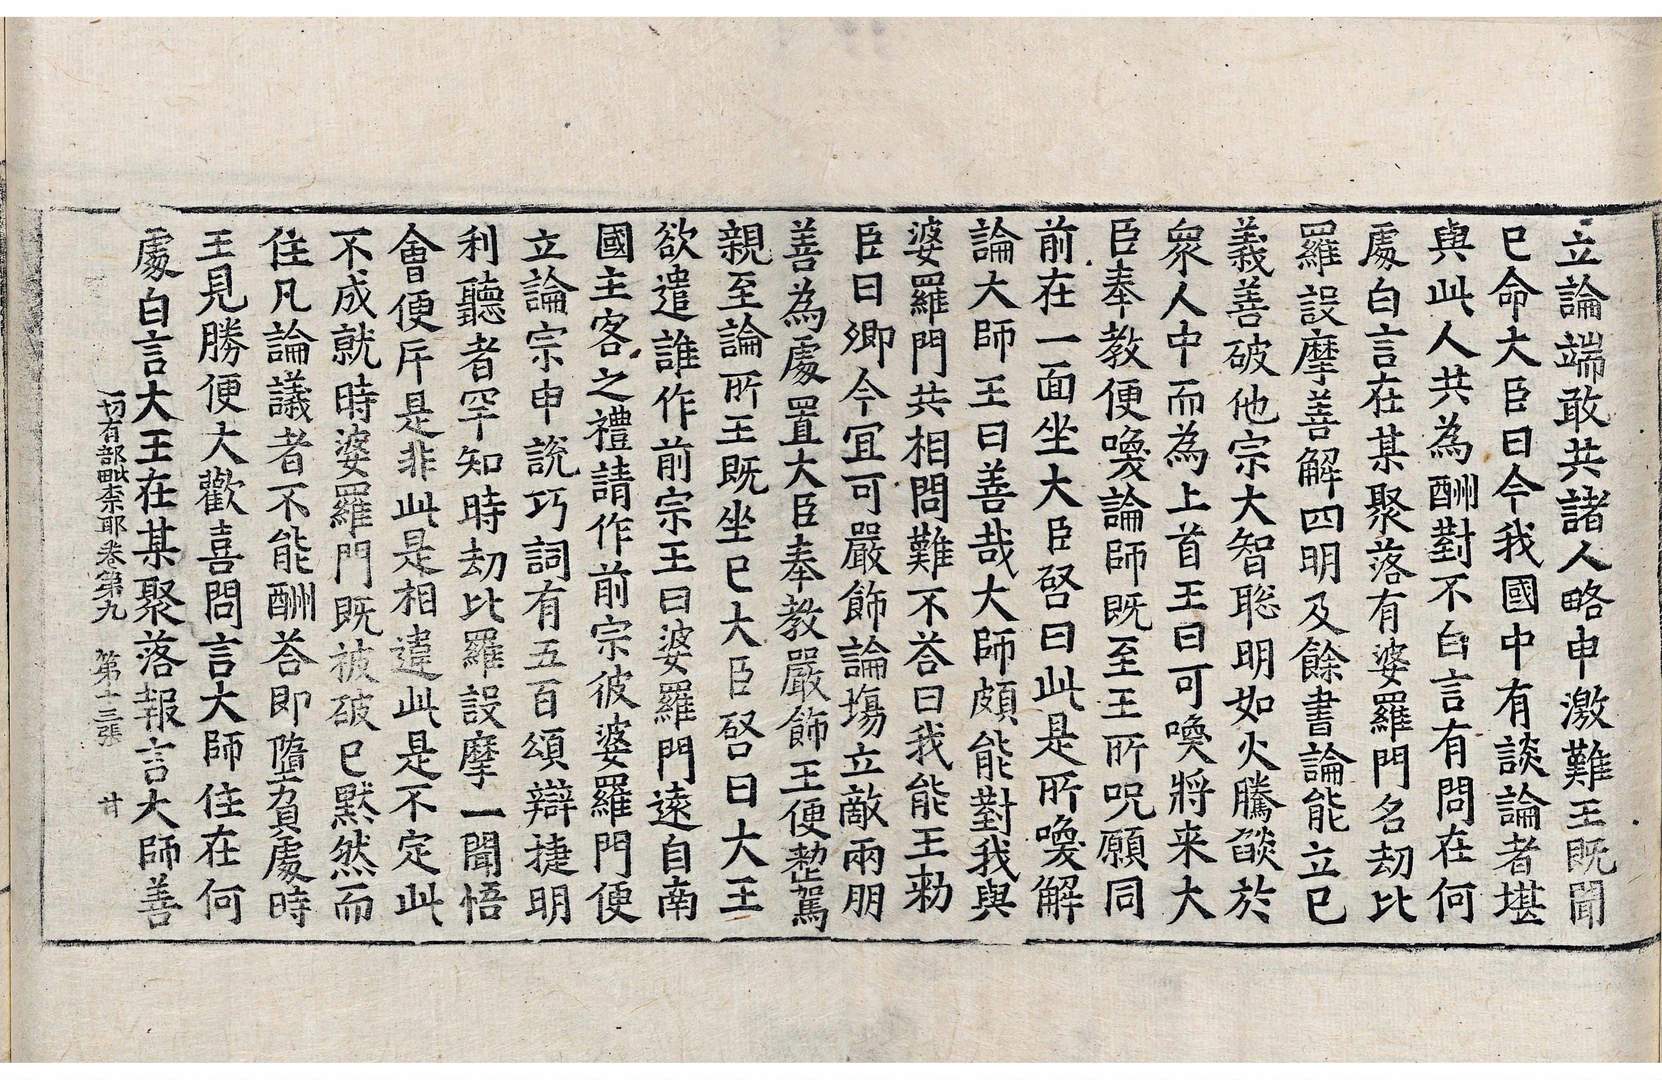 立論端敢共諸人略申激難王既聞
已命大臣曰今我國中有談論者堪
與此人共為酬對不白言有問在何
處白言在某聚落有婆羅門名劫比
羅設摩善解四明及餘書論能立已
義善破他宗大智聡明如火騰燄於
衆人中而為上首王曰可喚將来大
臣奉教便喚論師既至王所呪願同
前在一面坐大臣啓曰此是所喚解
論大師王曰善哉大師頗能對我與
婆羅門共相問難不荅曰我能王勑
臣曰卿今冝可嚴飾論塲立敵兩朋
善為處置大臣奉教嚴飾王便整駕
親至論所王既坐已大臣啓曰大王
欲遣誰作前宗王曰婆羅門遠自南
國主客之禮請作前宗彼婆羅門便
立論宗申說巧詞有五百頌辯捷明
利聽者罕知時劫比羅設摩一聞悟
會便斥是非此是相違此是不定此
不成就時婆羅門既被破已默然而
住凡論議者不能酬荅即墮負處時
王見勝便大歡喜問言大師住在何
處白言大王在某聚落報言大師善
一切有部毗柰耶卷第九 第十三張 廿